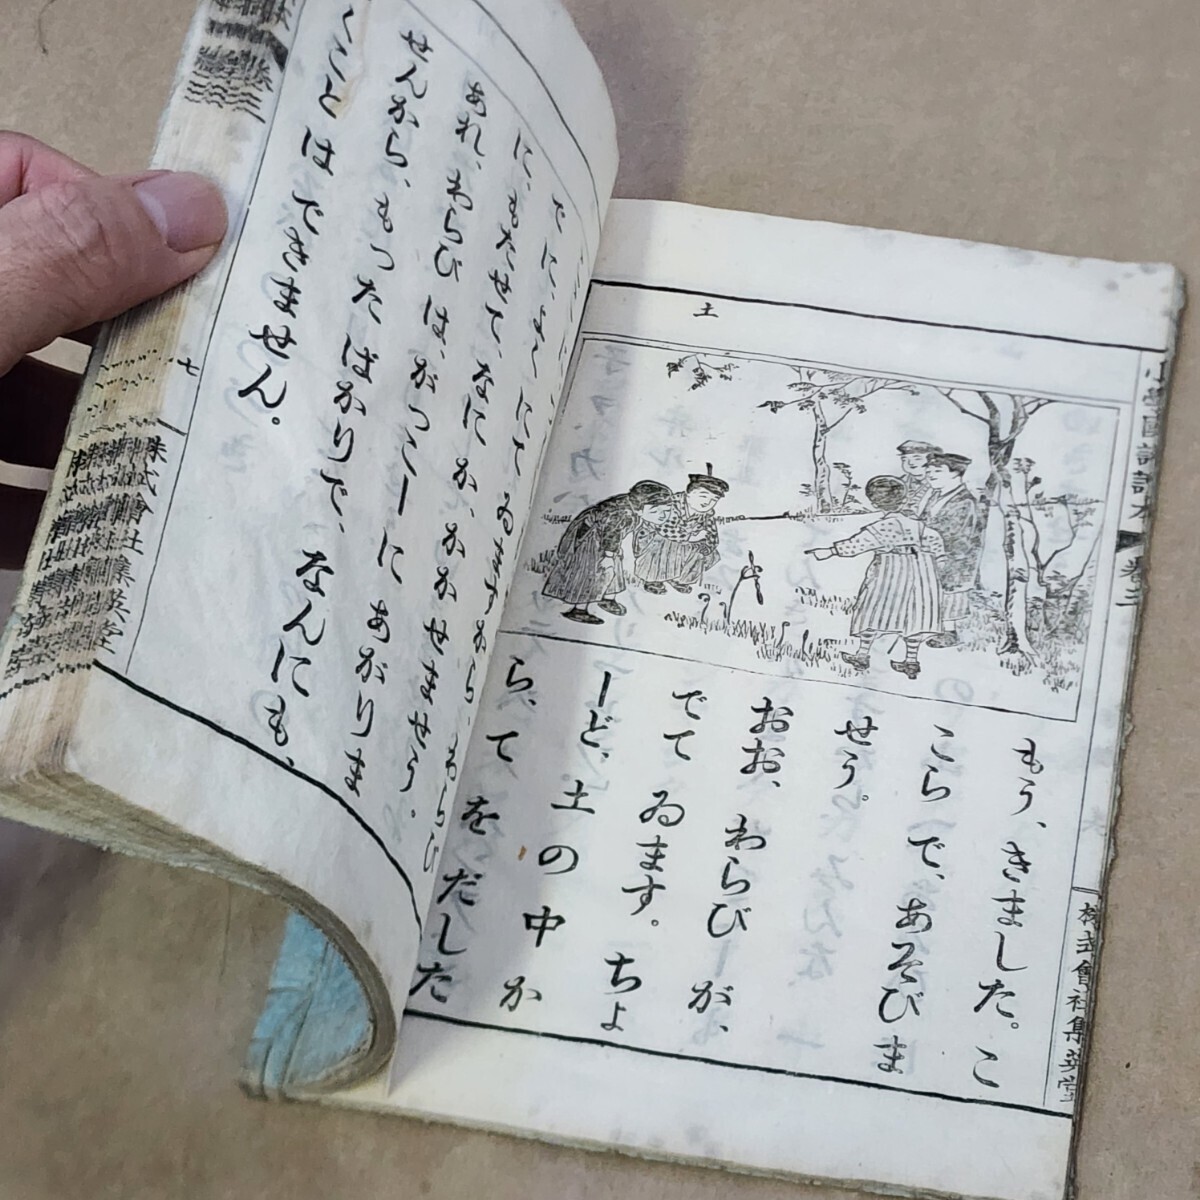 小學國語讀本 巻三
株式會社集英堂
土
もう、きました。こ
こらで、あそびま
せう。
おお、わらびが、
でてゐます。ちょ
ーど、土の中か
ら、てをだした
に、よくにてゐますから、わらび
に、もたせて、なにか、かかせませう。
あれ、わらびは、がっこーにあがりま
せんから、もったばかりで、なんにも、
くことはできません。
七
株式會社集英堂